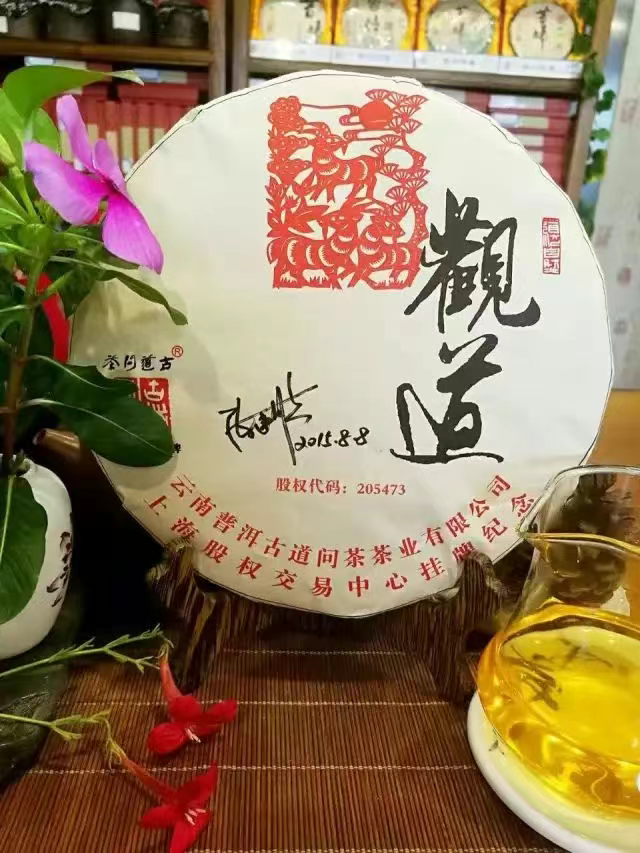 觀道
茶问道古®
2015.8.8
股权代码：205473
云南普洱古道问茶茶业有限公司
上海股权交易中心挂牌纪念